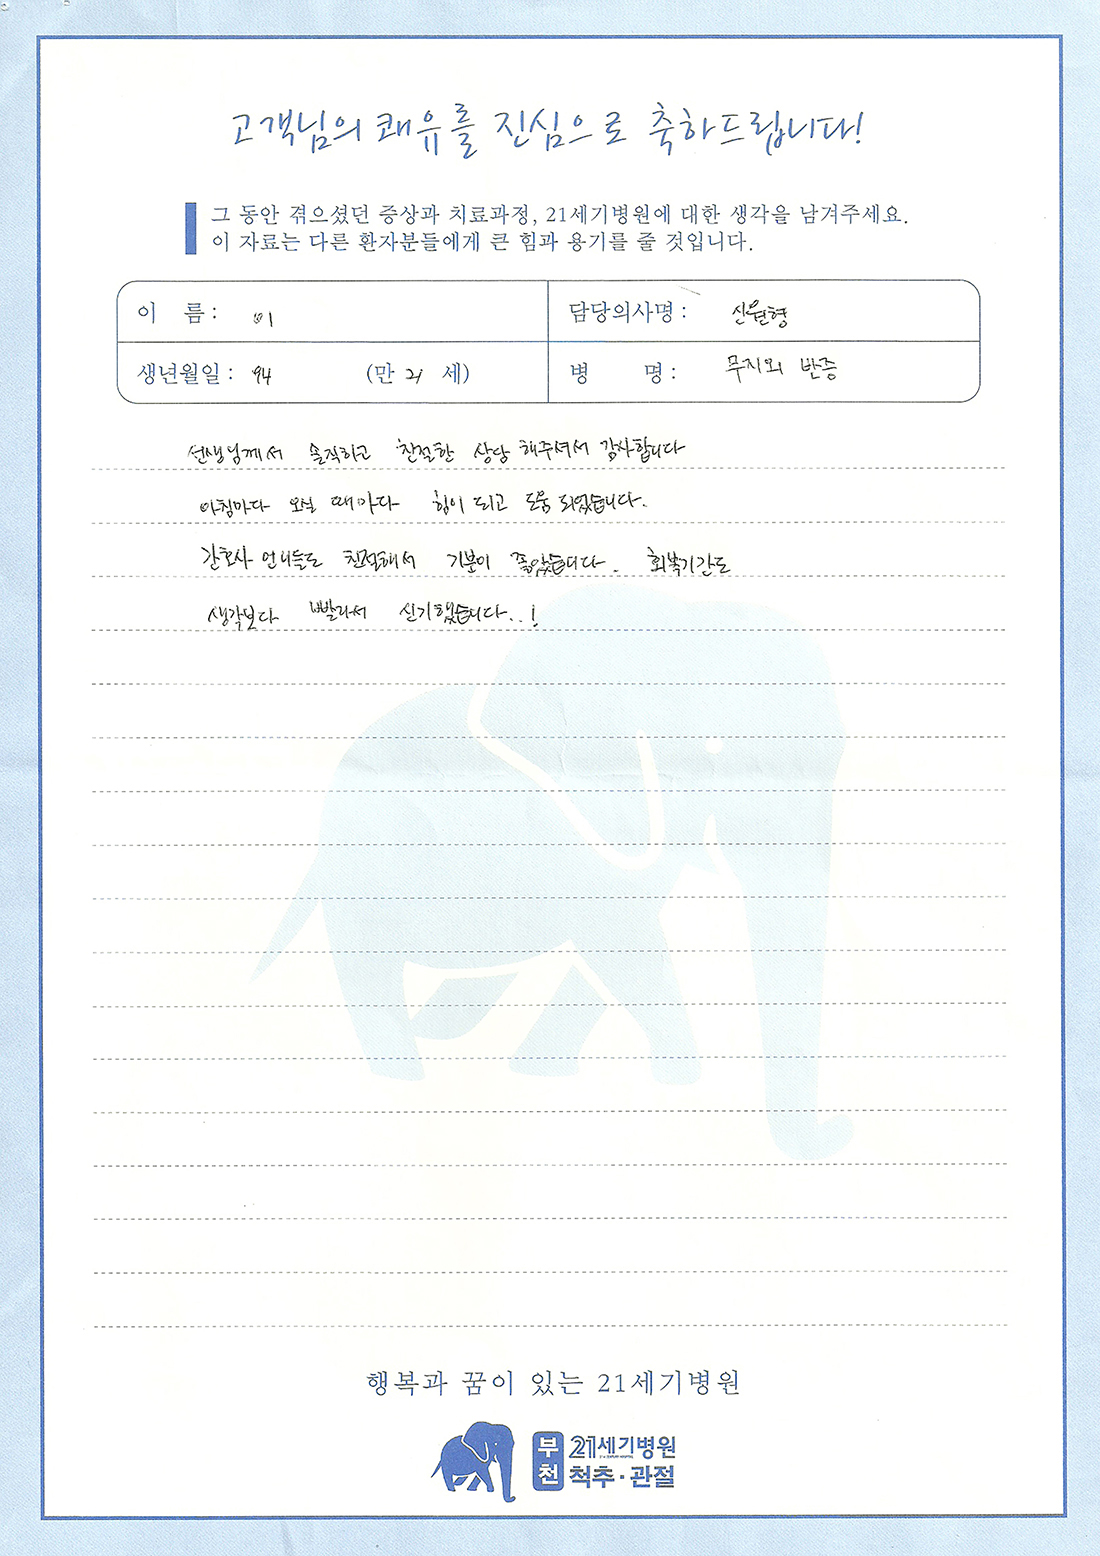 고객님의 쾌유를 진심으로 축하드립니다!
그 동안 겪으셨던 증상과 치료과정, 21세기병원에 대한 생각을 남겨주세요.
이 자료는 다른 환자분들에게 큰 힘과 용기를 줄 것입니다.
이 름 : 이
담당의사명 : 신원형
생년월일 : 94 (만 21 세)
병 명 : 무지외 반증
선생님께서 솔직하고 친절한 상담 해주셔서 감사합니다
아침마다 오실 때마다 힘이 되고 도움 되었습니다.
간호사 언니들도 친절해서 기분이 좋았습니다. 회복기간도
생각보다 빨라서 신기했습니다..!
행복과 꿈이 있는 21세기병원
부천 21세기병원
척추·관절